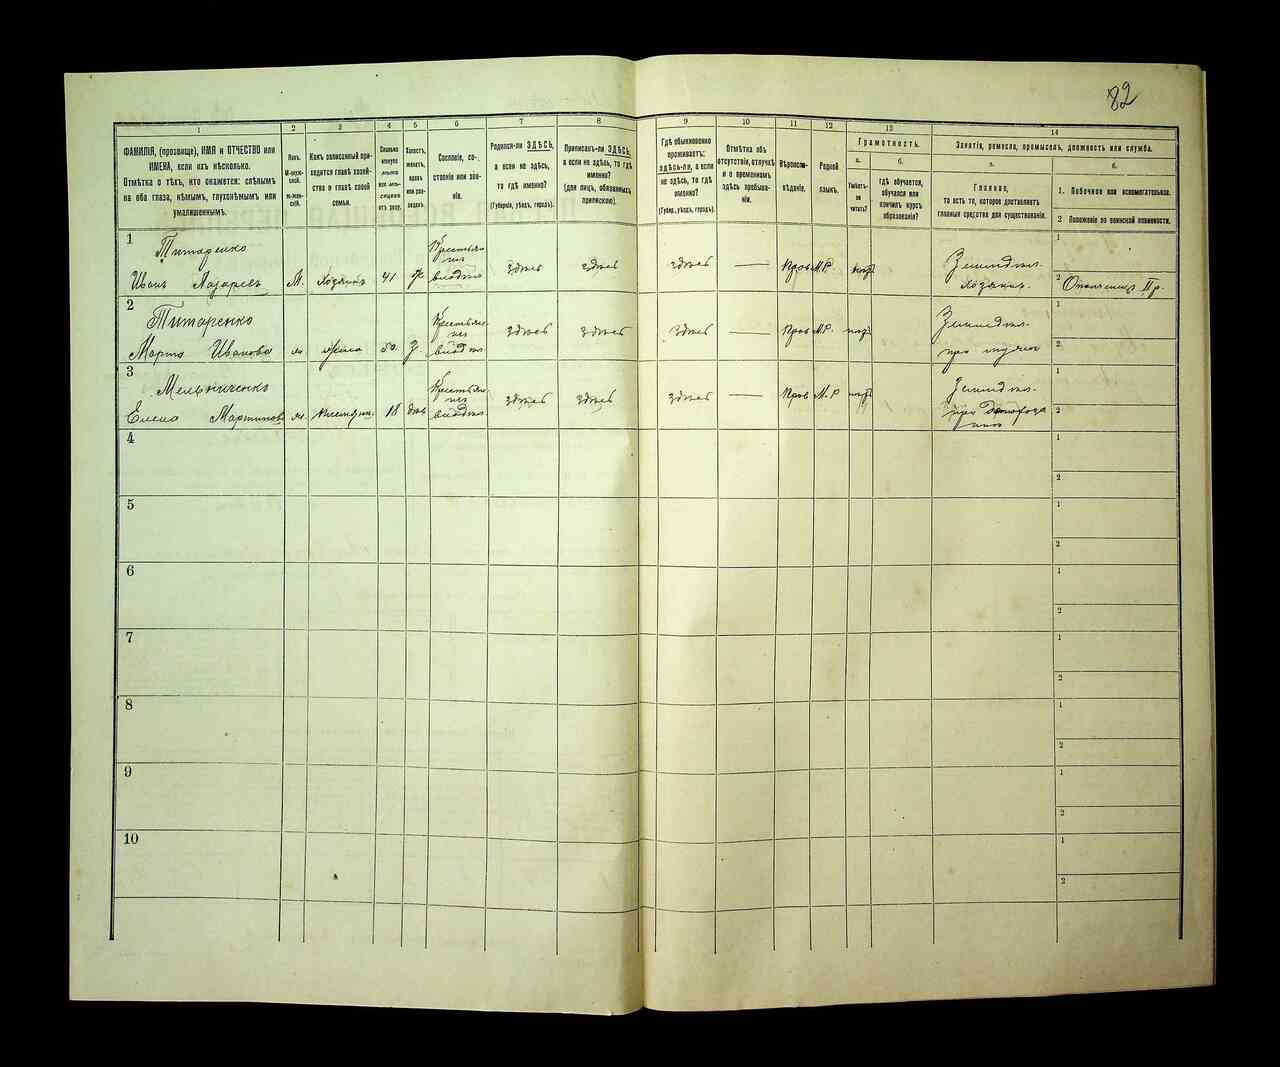 82
1
2
3
4
5
6
7
8
9
10
11
12
13
14
ФАМИЛІЯ, (прозвище), ИМЯ и ОТЧЕСТВО или
ИМЕНА, если ихъ нѣсколько.
Отмѣтка о тѣхъ, кто окажется: слѣпымъ
на оба глаза, нѣмымъ, глухонѣмымъ или
умалишеннымъ.
Полъ.
М-муж-
ской.
Ж-жен-
скій.
Какъ записанный при-
ходится главѣ хозяй-
ства и главѣ своей
семьи.
Сколько
минуло
лѣтъ
или мѣ-
сяцевъ
отъ роду.
Холостъ,
женатъ,
вдовъ
или раз-
веденъ.
Сословіе, со-
стояніе или зва-
ніе.
Родился-ли ЗДѢСЬ,
а если не здѣсь,
то гдѣ именно?
(Губернія, уѣздъ, городъ).
Приписанъ-ли ЗДѢСЬ,
а если не здѣсь, то гдѣ
именно?
(для лицъ, обязанныхъ
припискою).
Гдѣ обыкновенно
проживаетъ:
ЗДѢСЬ-ЛИ, а если
не здѣсь, то гдѣ
именно?
(Губер., уѣздъ, городъ).
Отмѣтка объ
отсутствіи, отлучкѣ
и о временномъ
здѣсь пребыва-
ніи.
Вѣроиспо-
вѣданіе.
Родной
языкъ.
Грамотность.
а.
б.
Умѣетъ-
ли
читать?
гдѣ обучается,
обучался или
кончилъ курсъ
образованія?
Занятіе, ремесло, промыселъ, должность или служба.
а.
б.
Главное,
то есть то, которое доставляетъ
главныя средства для существованія.
1. Побочное или вспомогательное.
2 Положеніе по воинской повинности.
1
Титаренко
Иванъ Лазаревъ М. хозяинъ 41 здѣсь здѣсь здѣсь — Прав М.Р. нѣтъ
Земледѣл.
хозяинъ
1
2 Ополченецъ II р.
2
Титаренко
Марта Иванова жена 50 здѣсь здѣсь здѣсь — Прав М.Р нѣтъ
Земледѣл.
1
2
3
Мельниченко
Елена Мартинова 18 здѣсь здѣсь здѣсь — Прав М.Р нѣтъ
Земледѣл.
при
1
2
4
1
2
5
1
2
6
1
2
7
1
2
8
1
2
9
1
2
10
1
2